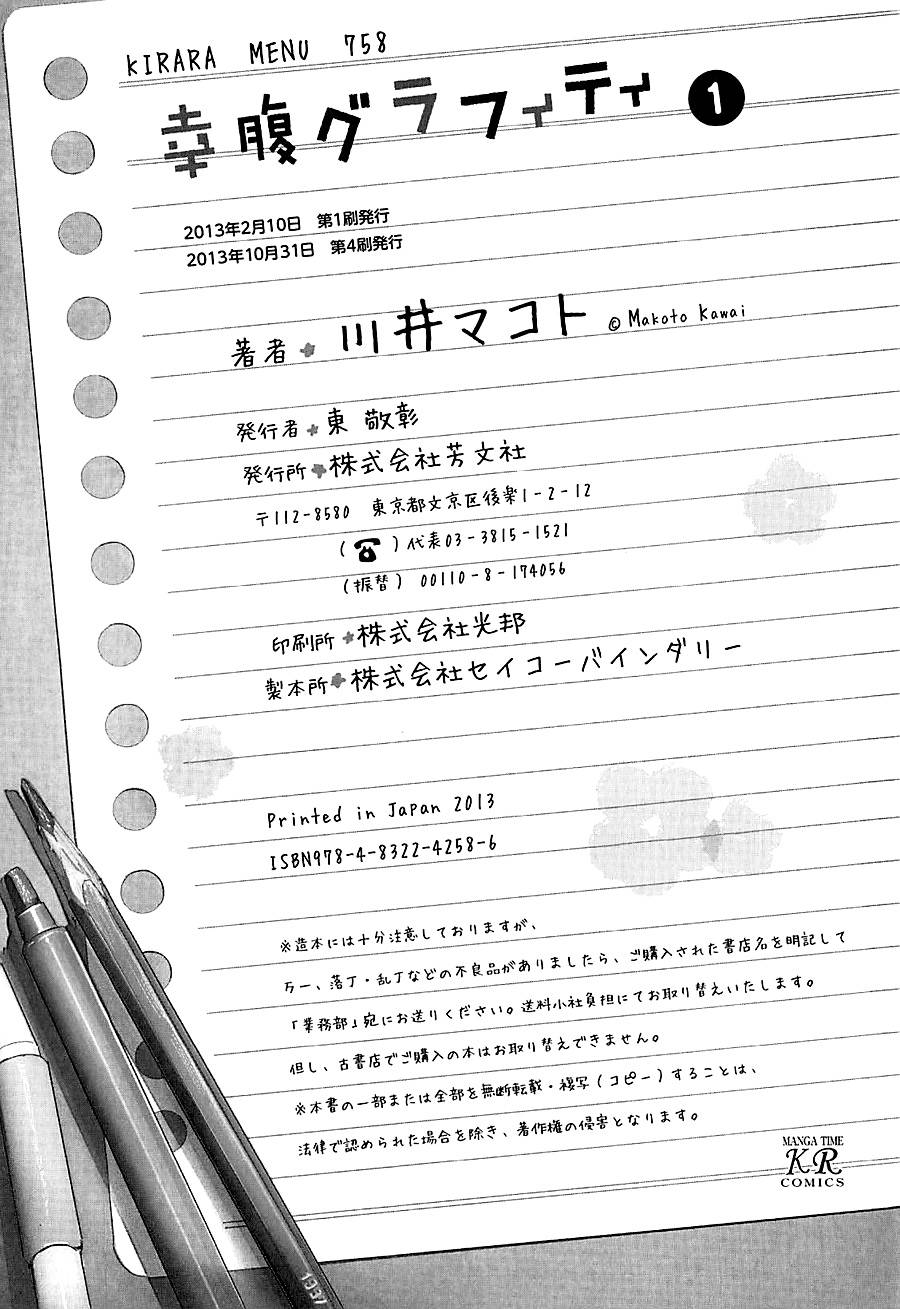 KIRARA MENU 758
幸腹グラフィティ 1
2013年2月10日 第1刷発行
2013年10月31日 第4刷発行
著者 川井マコト © Makoto Kawai
発行者 東 敬彰
発行所 株式会社芳文社
〒112-8580 東京都文京区後楽1-2-12
(☎)代表03-3815-1521
(振替) 00110-8-174056
印刷所 株式会社光邦
製本所 株式会社セイコーバインダリー
Printed in Japan 2013
ISBN978-4-8322-4258-6
※造本には十分注意しておりますが、
万一、落丁・乱丁などの不良品がありましたら、ご購入された書店名を明記して
「業務部」宛にお送りください。送料小社負担にてお取り替えいたします。
但し、古書店でご購入の本はお取り替えできません。
※本書の一部または全部を無断転載・複写(コピー)することは、
法律で認められた場合を除き、著作権の侵害となります。
MANGA TIME
KR
COMICS
1937